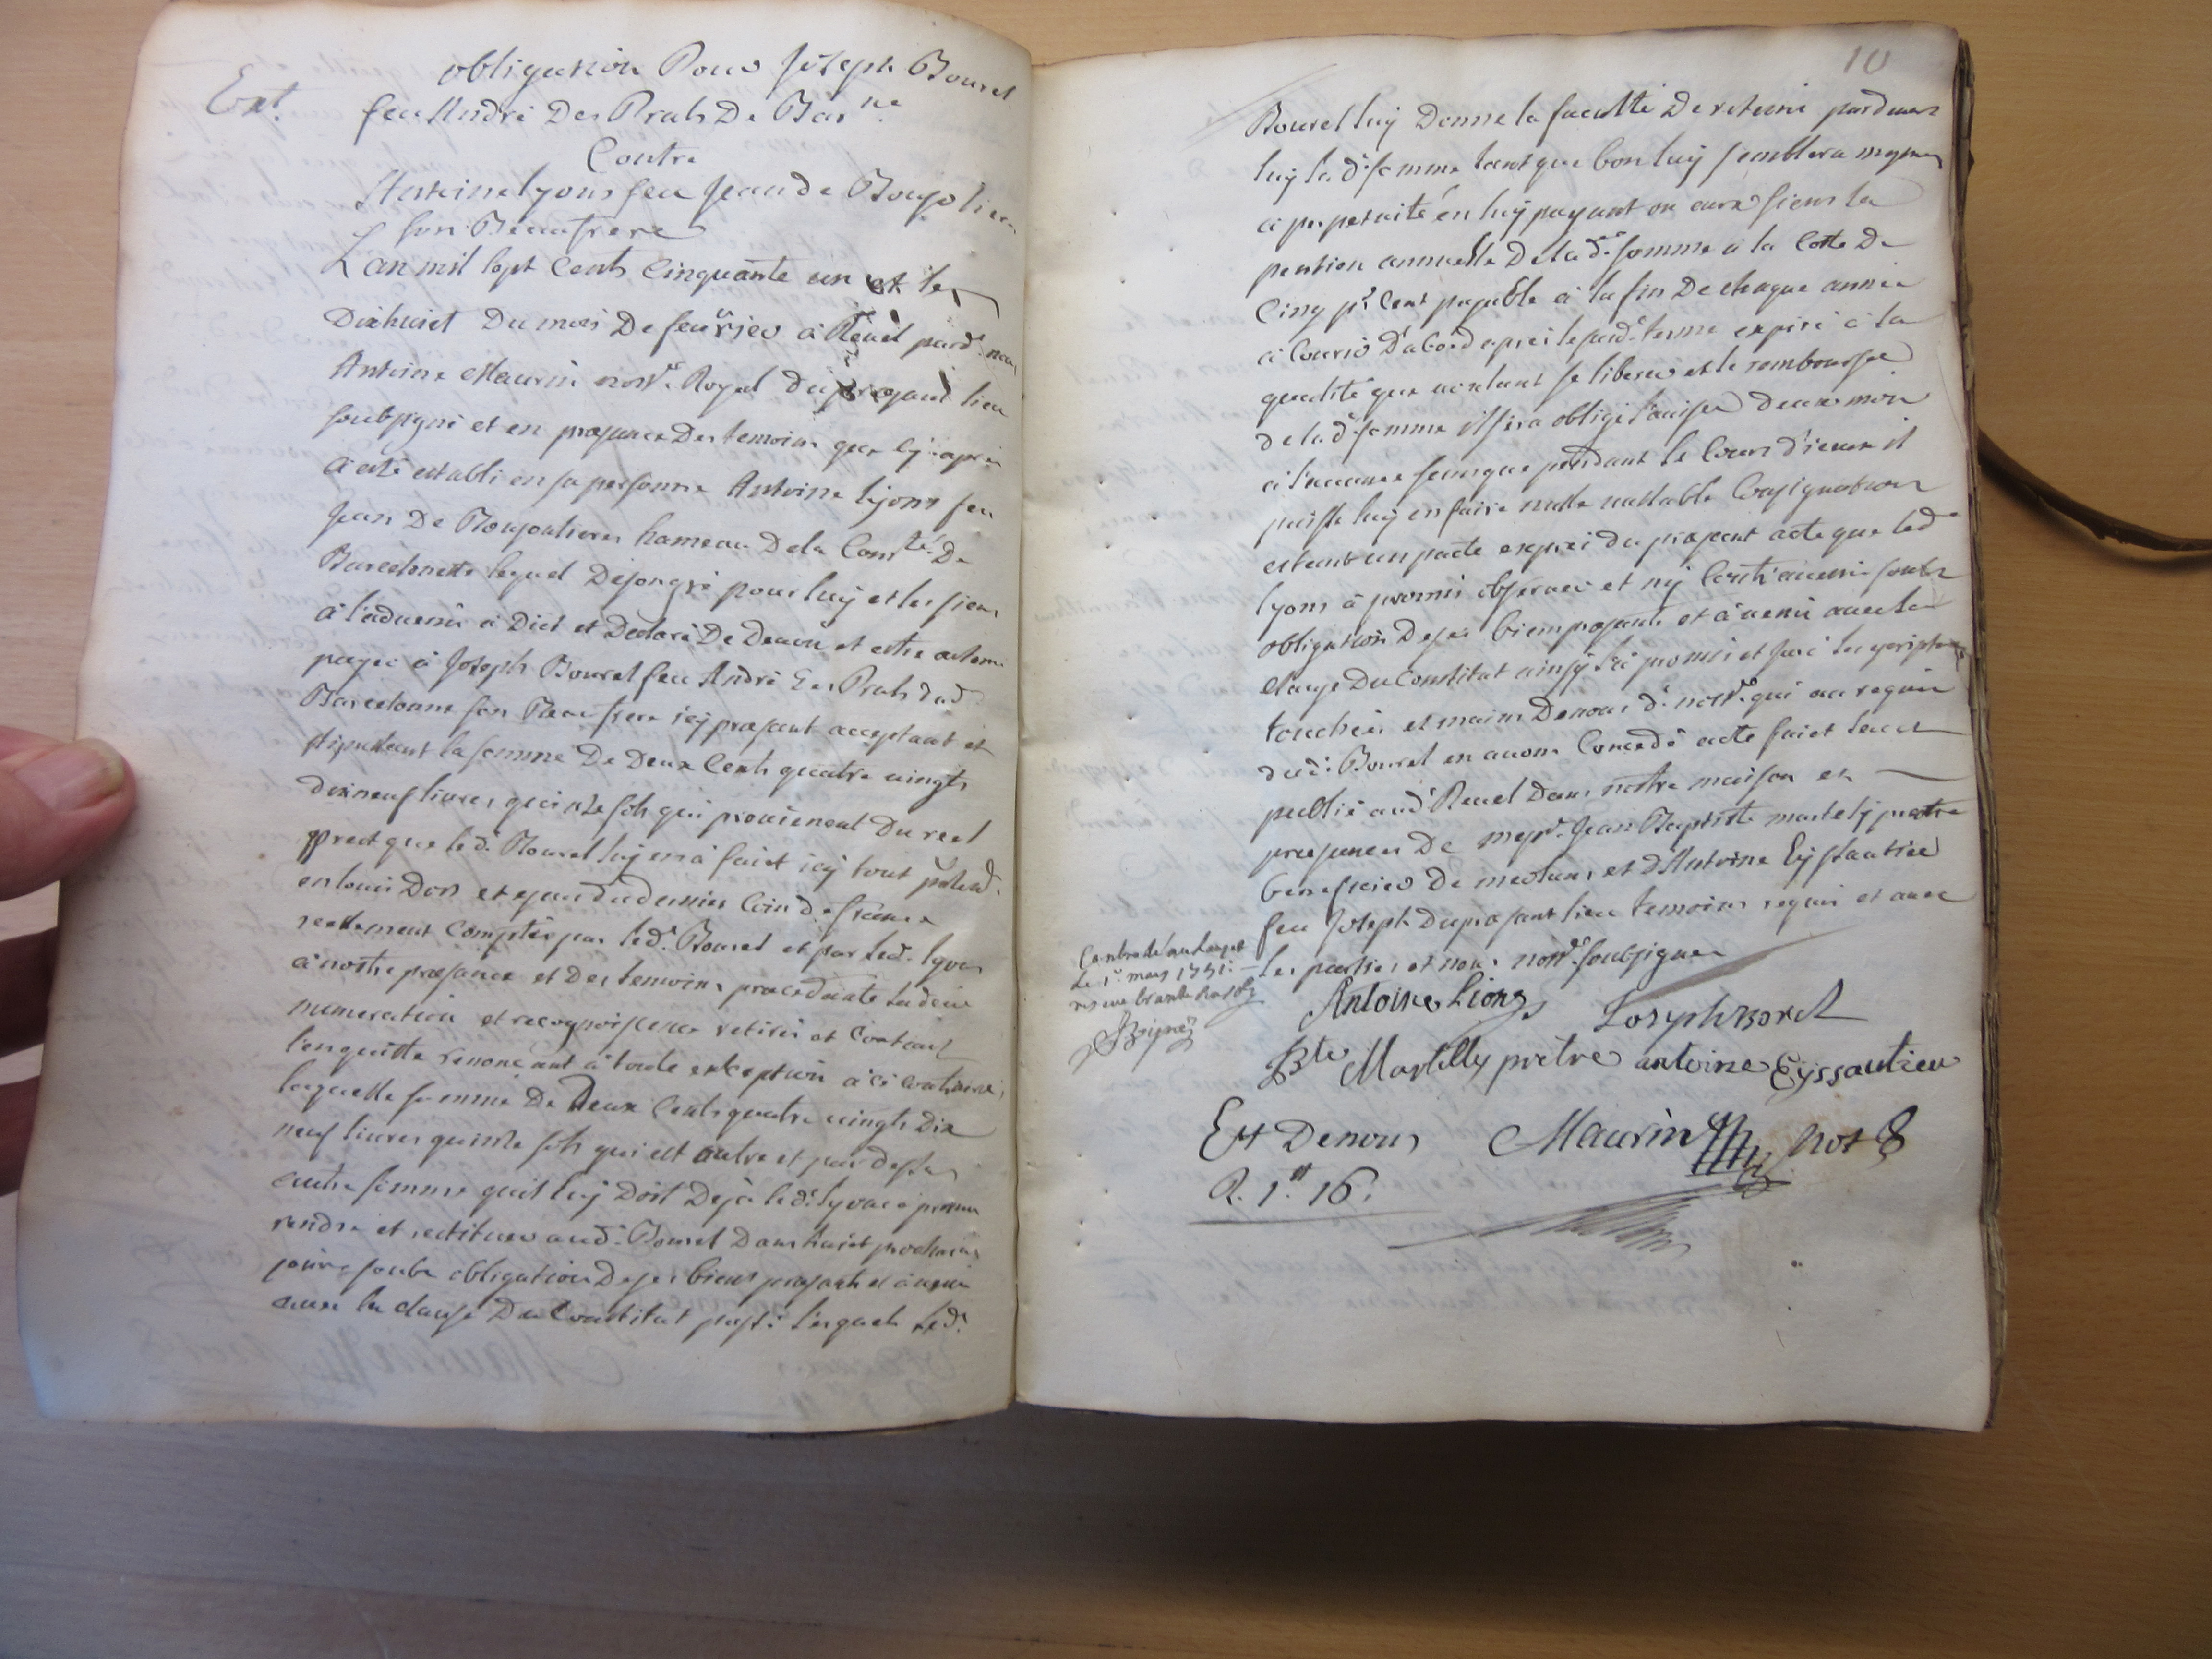 obligation Pour Joseph Bourel
Ext.
feu André Des Prats De Bar.ne
Contre
Antoine lyons feu Jean de
son Beaufrere
L an mil sept Cents Cinquante un et le
Dixhuict Du mois De feuvrier à Revel pard.t nous
Antoine Maurin not.re Royal du present lieu
soubsigné et en presance Des temoins que cy apres
à esté establi en sa personne Antoine lyons feu
Jean De hameau De la Com.té De
Barcelonette lequel Dejongré pour luy et les siens
à l'advenir à Dict et Declaré De Devoir et estre
payer à Joseph Bourel feu André Des Prats dud.
Barcelonne son Beau frere icy presant acceptant et
stipulant la somme De Deux Cents quatre vingts
dixneuf livres quinze sols qui provienent Du reel
prest que led. Bourel luy en à faict icy tout
en louis Dor et ecus du dernier Coin de france
reellement Comptée par led. Bourel et par led. lyons
à nostre presance et Des temoins procedante
numeration et recognoissance retirée et Contant
l'en quitte renoncant à toute exception à ce contraire
laquelle somme De Deux Cents quatre vingts Dix
neuf livres quinze sols qui est outre et par dessus
autre somme quil luy Doit Dejà led. lyons à promis
rendre et restituer aud. Bourel Dans huict prochains
jours soubs obligation De ses biens presants et à venir
avec la clause Du Constitut passé lesquels led.
10
Bourel luy Donne la faculté De retenir pardevers
luy la d. somme tant que bon luy semblera mesmes
à perpetuité en luy payant ou aux siens la
pention annuelle De la d. somme à la Cotte De
Cinq p.r Cent payable à la fin De chaque année
à Courir D'abord apres le susd. terme expiré à la
qualité que voulant se liberer et le rembourser
de la d. somme il sera obligé l'aviser deux mois
à l'avance sans que pendant le Cours d'iceux il
puisse luy en faire nulle vallable Consignation
estant un pacte exprés du present acte que led.
lyons à promis observer et ny Contrevenir soubs
obligation De ses biens presants et à venir avec la
clause Du Constitut ainsy l'à promis et juré les escriptures
touchées es mains De nous d. not.re qui au requis
dud. Bourel en avons Concedé acte faict leu et
publié aud. Revel Dans nostre maison en
presance De mess.re Jean Baptiste martely prestre
beneficier de meolans et d'Antoine Eyssautier
feu Joseph Du presant lieu temoins requis et avec
les parties et nous not.re soubsignes
Controllé au Lauzet
le 1.r mars 1751.

Antoine Lions Josephborel
Jbte Martelly prêtre antoine Eyssautier
Et De nous Maurin not.
R. 1.tt 16.